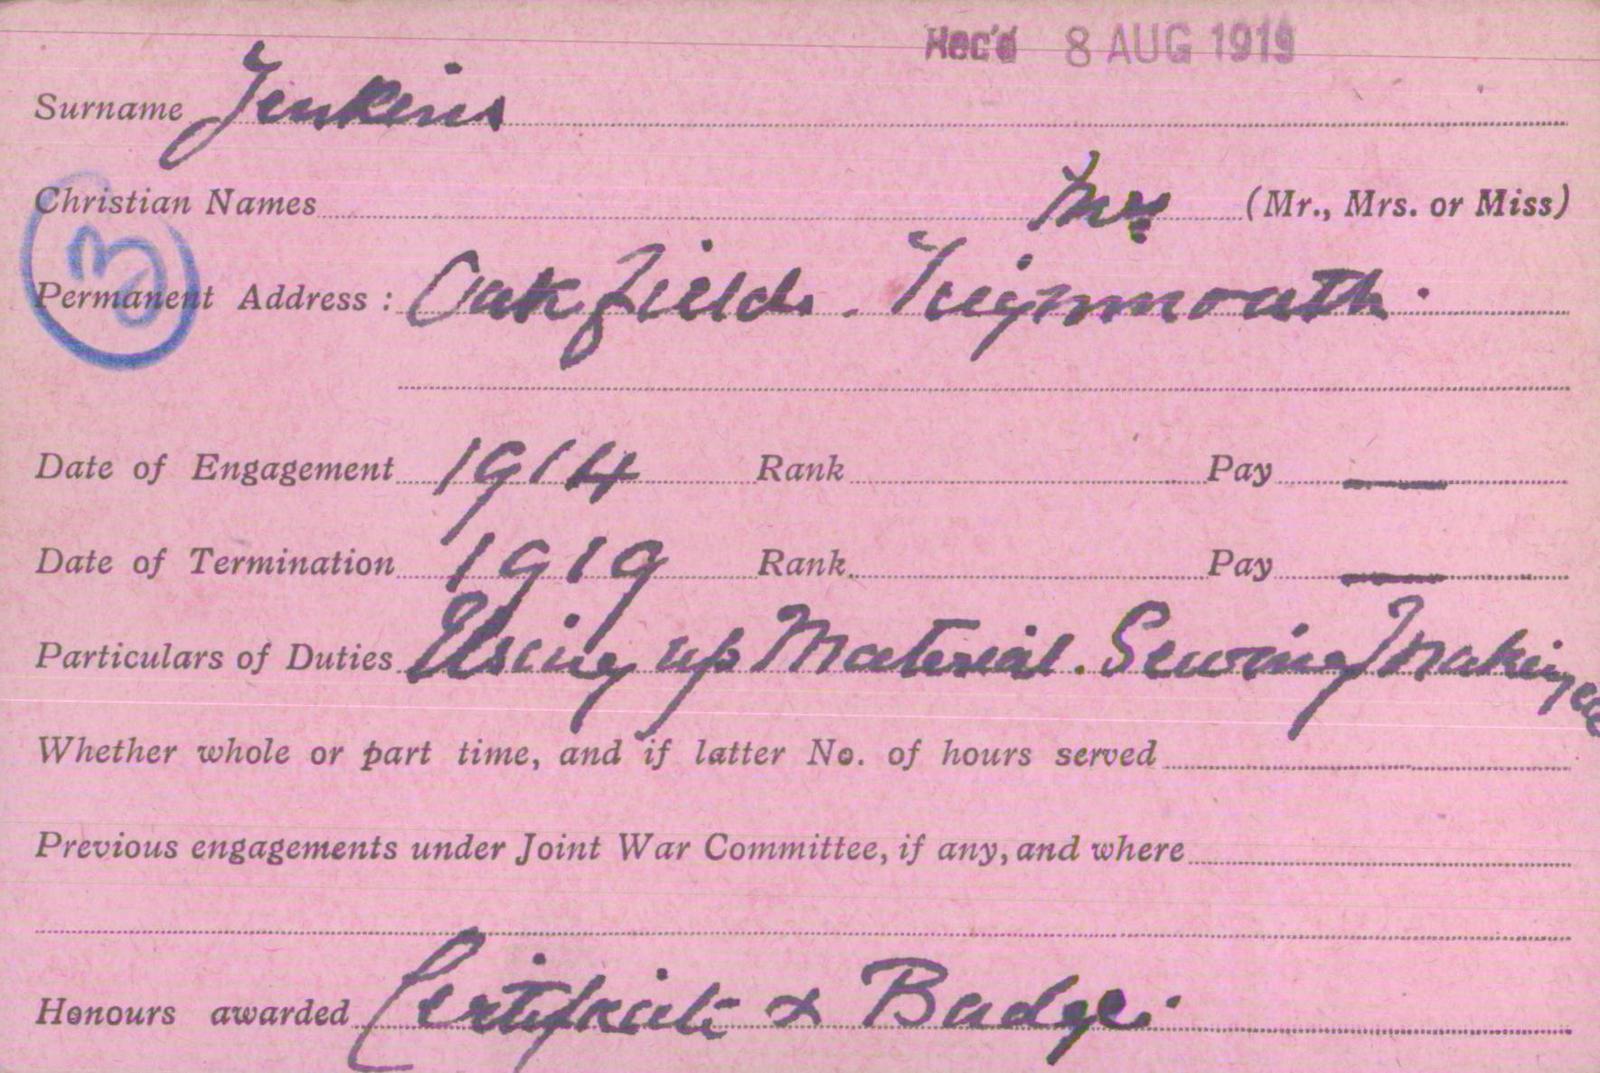 Rec'd 8 AUG 1919
Surname Jenkins
Christian Names Mrs (Mr., Mrs. or Miss)
Permanent Address : Oakfields. Teignmouth.
Date of Engagement 1914 Rank Pay —
Date of Termination 1919 Rank Pay —
Particulars of Duties Using up Material. Sewing Making
Whether whole or part time, and if latter No. of hours served
Previous engagements under Joint War Committee, if any, and where
Honours awarded Certificate & Badge.